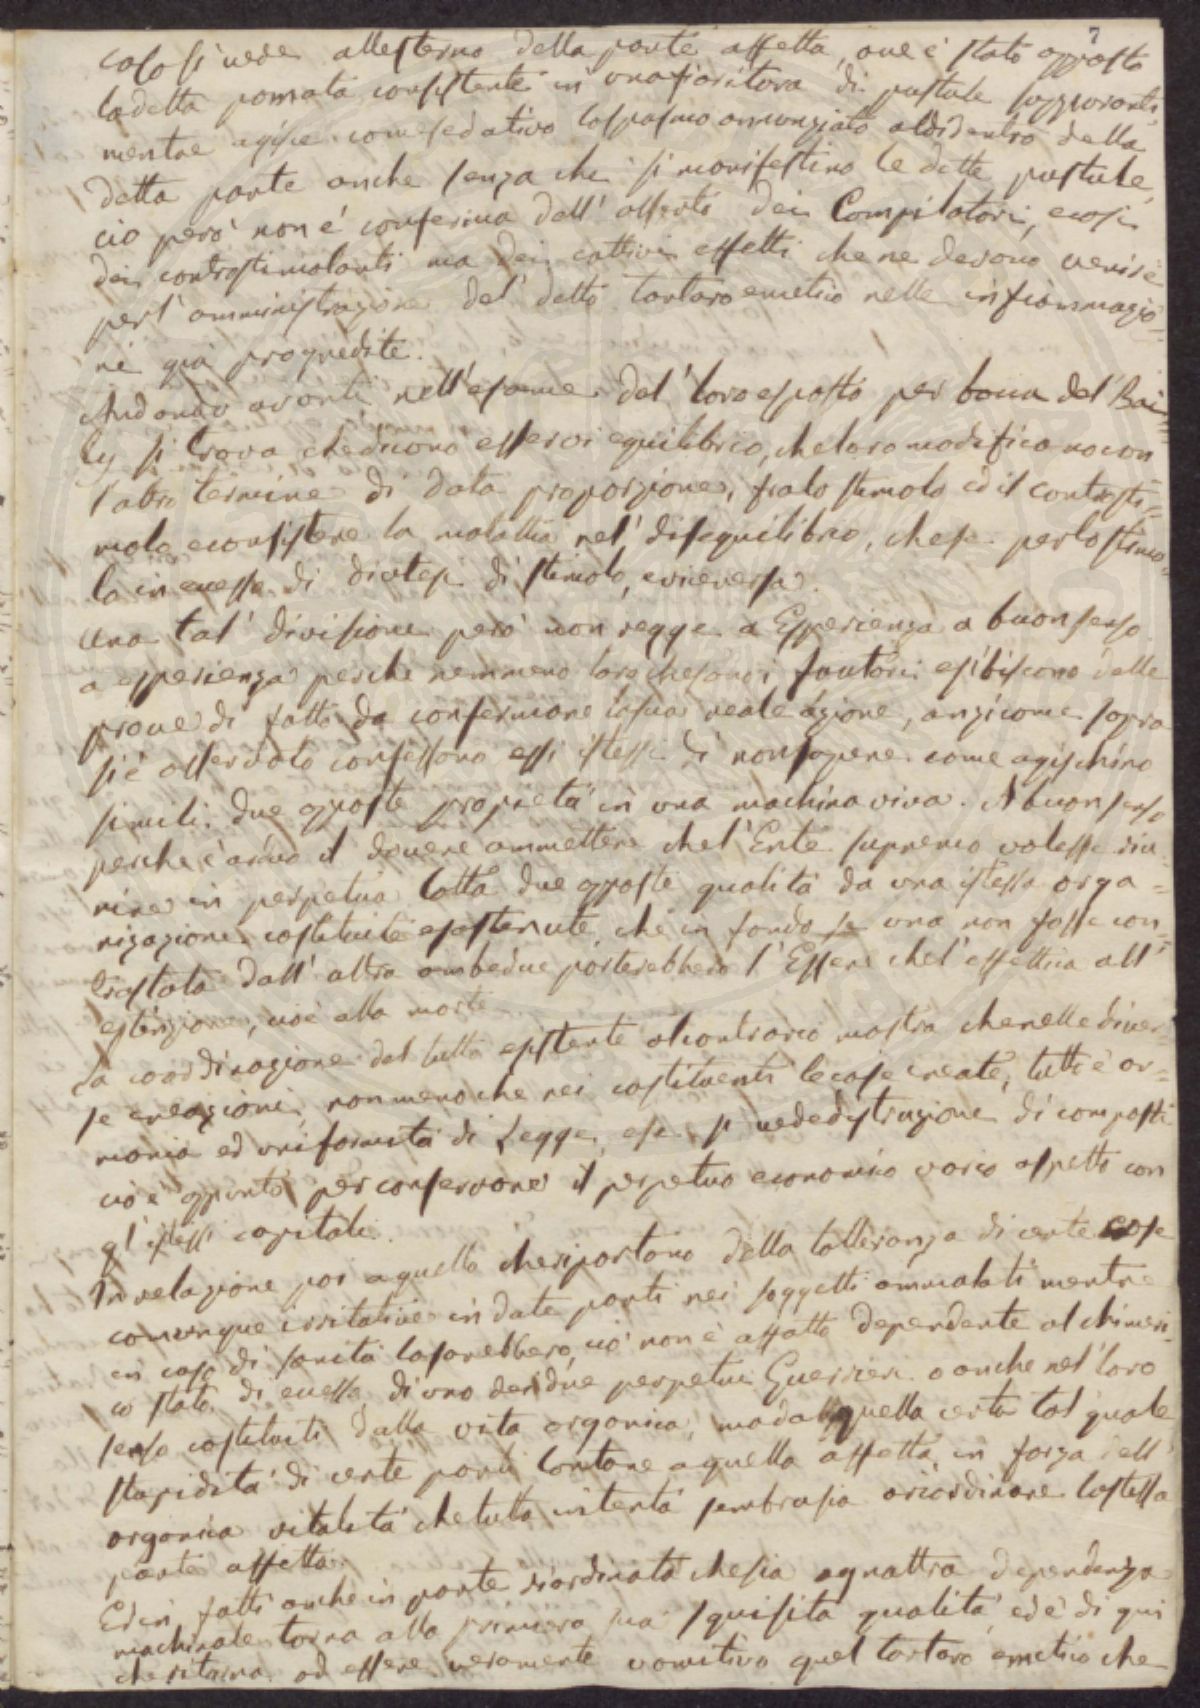 7
caso si vede all'esterno della parte affetta, ove è stato apposta
la detta pomata consistente in una fioritura di pustule suppuranti,
mentre agisce come sedativo lo spasmo annunziato al di dentro della
detta parte anche senza che si manifestino le dette pustule,
ciò però non è conferma dell'asserto dei Compilatori, e così
dei controstimolanti ma dei cattivi effetti che ne devono venire
per l'amministrazione del detto tartaro emetico nelle infiammagio=
ni già progredite.
Andando avanti nell'esame del loro esposto per bocca del Bai=
ly si trova che dicono esservi equilibrio, che loro modificano con
l'altro termine di data proporzione, fra lo stimolo ed il controsti=
molo, e consistere la malattia nel disequilibrio, che se per lo stimo=
lo in essa di diatesi di stimolo, e viceversa.
Una tal divisione però non regge a Esperienza a buon senso
a esperienza perche nemmeno loro che sono i fautori esibiscono delle
prove di fatto da confermare la sua reale azione, anzi come sopra
si è osservato confessano essi istessi di non sapere come agischino
simili due opposte proprietà in una machina viva. A buon senso
perche è assurdo il dovere ammettere che l'Ente supremo volesse riu=
nire in perpetua lotta due opposte qualità da una istessa orga=
nizazione costituite e sostenute, che in fondo se una non fosse con=
trastata dall'altra ambedue porterebbero l'Essere che l'effettua all'
estinzione, cioè alla morte.
La coordinazione del tutto esistente al contrario mostra che nelle diver=
se creazioni, non meno che nei costituenti le cose create, tutto è ar=
monia ed uniformità di Legge, e se si vede destruzione di composti
ciò è appunto per conservare il perpetuo economico vario aspetto con
gl'istessi capitali.
In relazione poi a quello che riportano della tolleranza di certe cose
comunque irritative in date parti nei soggetti ammalati mentre
in caso di sanità lo sarebbero, ciò non è affatto dependente al chimeri=
co stato di essa di uno dei due perpetui Guerrieri o anche nel loro
senso costituiti dalla vita organica, ma da quella certa tal quale
stupidità di certe parti lontane a quella affetta, in forza dell'
organica vitalità che tutta intenta sembra sia a riordinare la stessa
parte affetta.
Ed in fatti anche in parte riordinata che sia ogn'altra dependenza
machinale torna alla primiera sua squisita qualità, ed è di qui
che ritorna ad essere veramente vomitivo quel tartaro emetico che